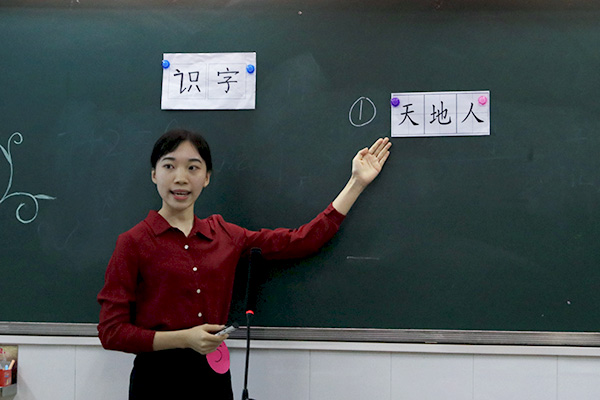 识字
① 天地人